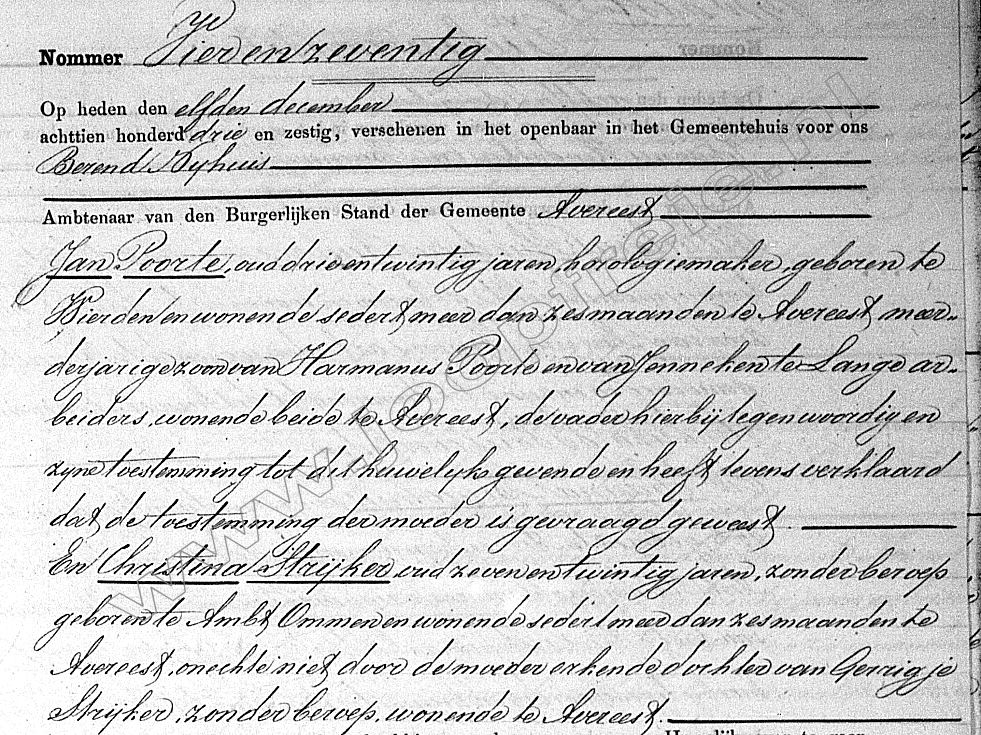 Nommer Vier en zeventig
Op heden den elfden december
achttien honderd drie en zestig, verschenen in het openbaar in het Gemeentehuis voor ons
Berend Nyhuis
Ambtenaar van den Burgerlijken Stand der Gemeente Avereest
Jan Poorte, oud drie en twintig jaren, horologiemaker, geboren te
Wierden en wonende sedert meer dan zes maanden te Avereest, meer-
derjarige zoon van Harmanus Poorte en van Jenneken te Lange ar-
beiders, wonende beide te Avereest, de vader hierbij tegenwoordig en
zyne toestemming tot dit huwelyk gevende en heeft tevens verklaard
dat de toestemming der moeder is gevraagd geweest.
En Christina Strijker, oud zeven en twintig jaren, zonder beroep
geboren te Ambt Ommen en wonende sedert meer dan zes maanden te
Avereest, onechte niet door de moeder erkende dochter van Gerrigje
Strijker, zonder beroep, wonende te Avereest.
www.jooptrefpunt.nl